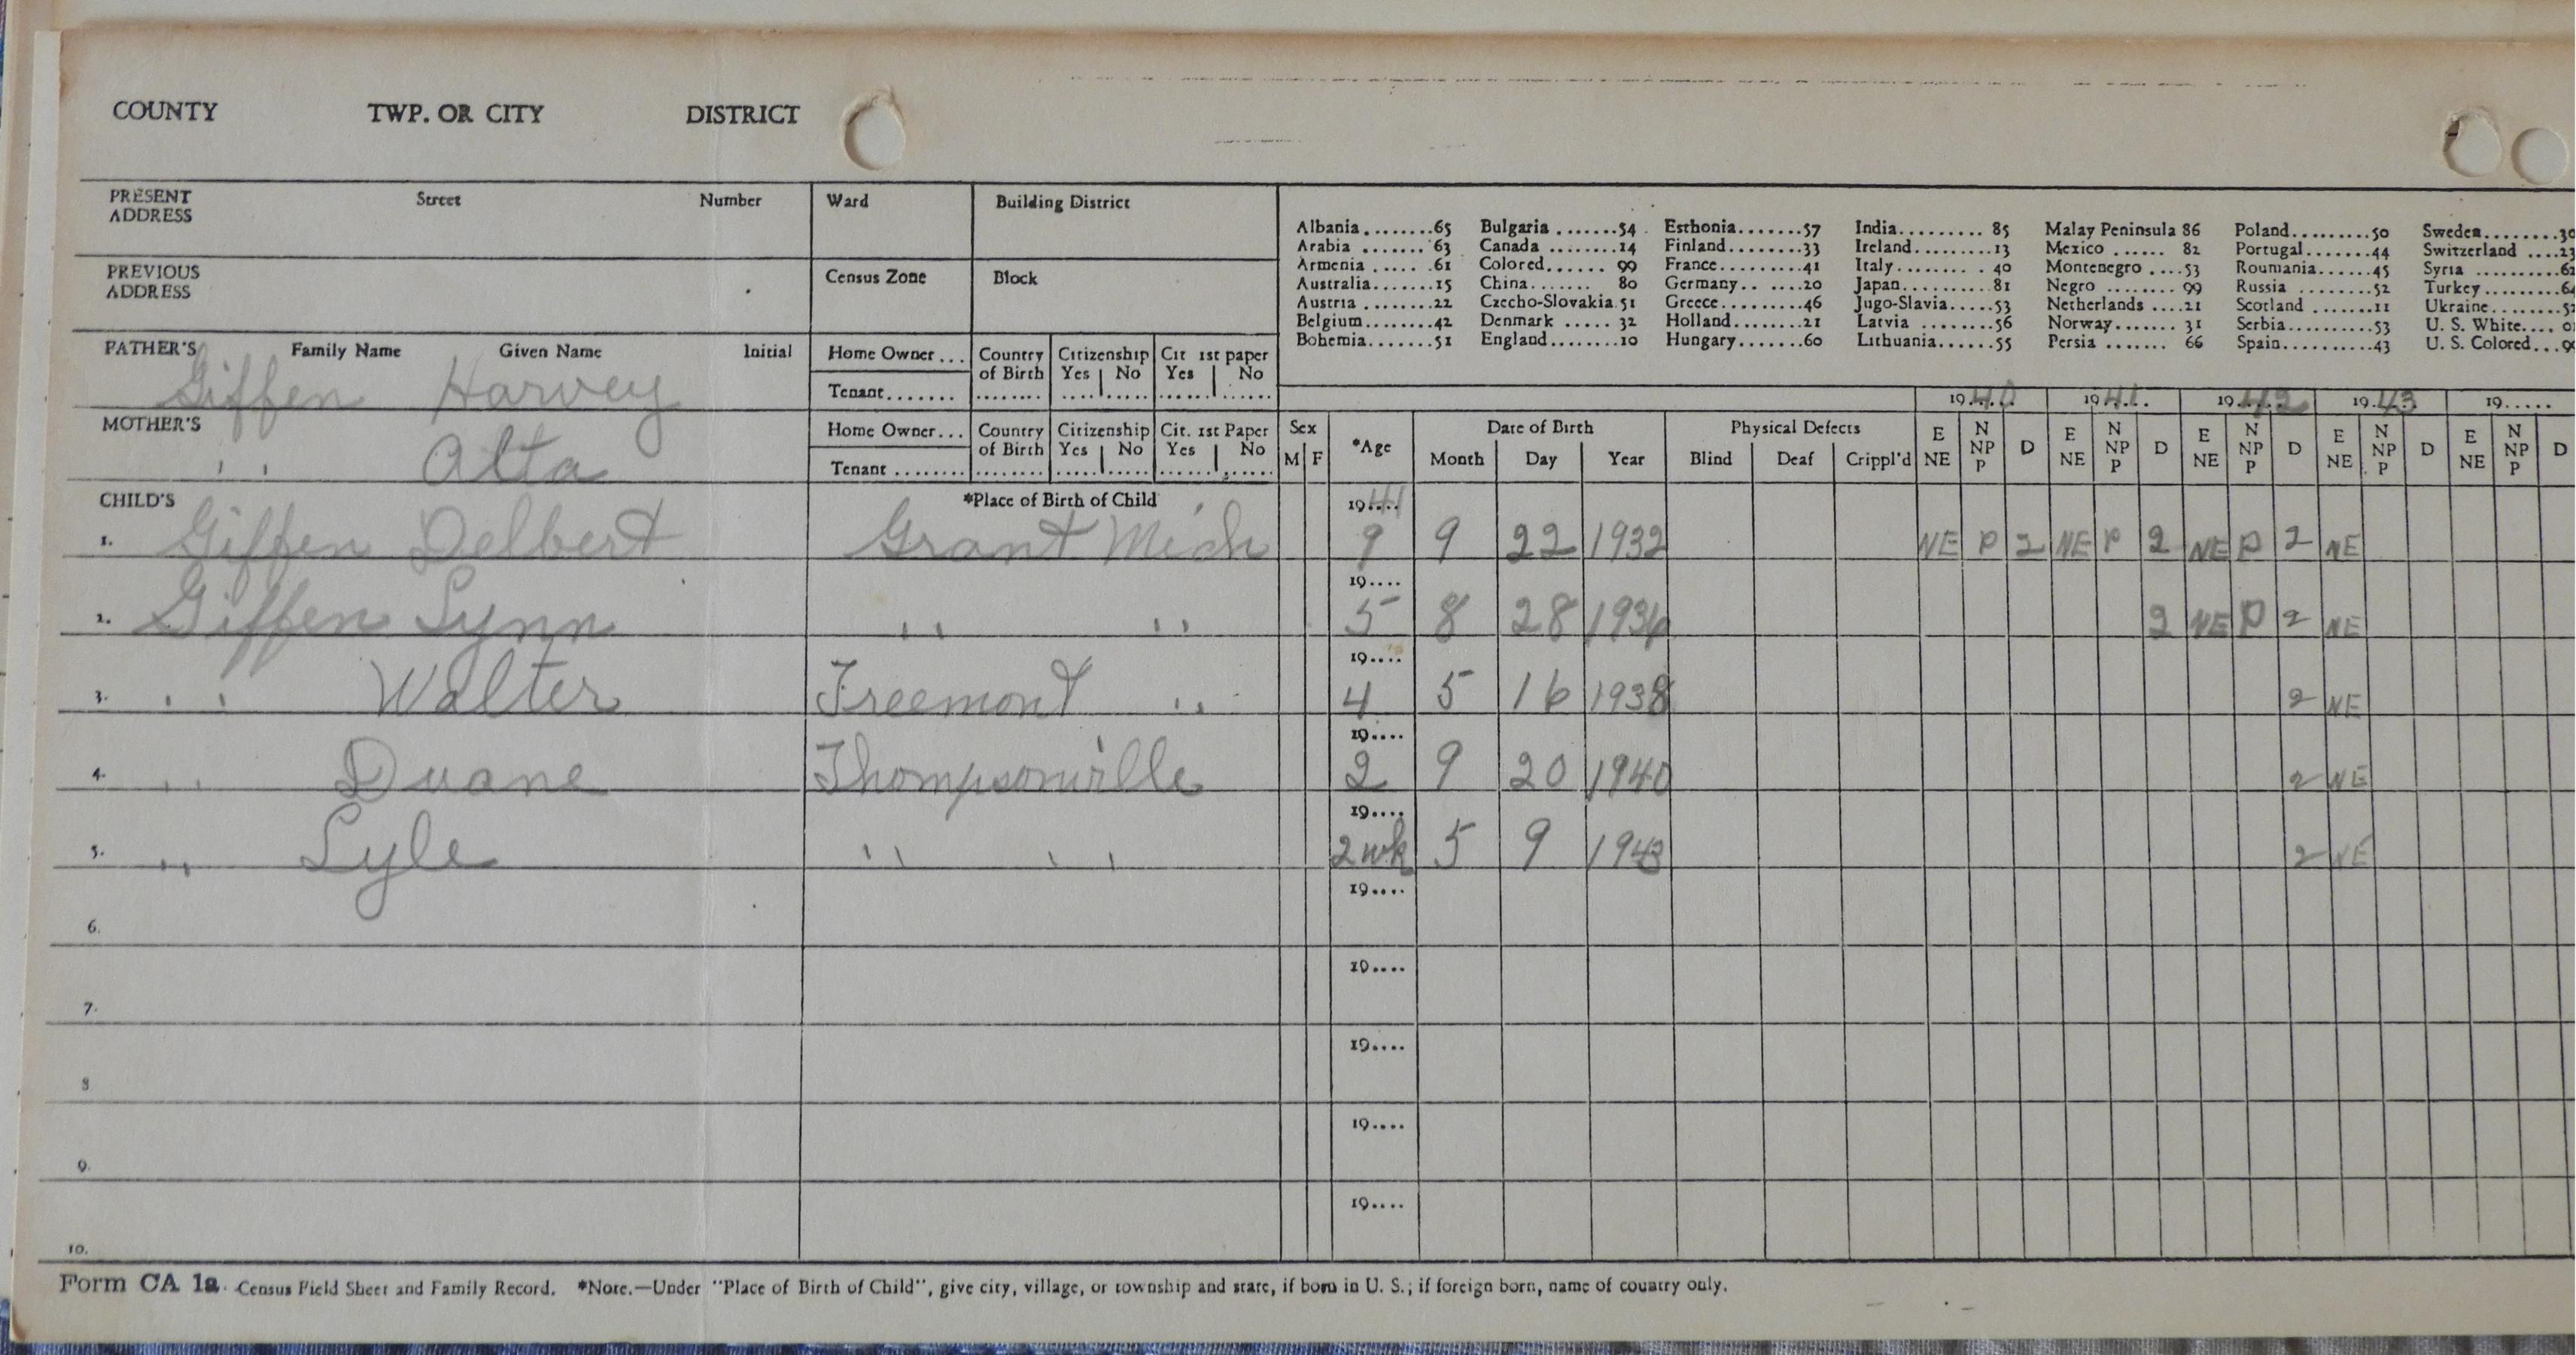 COUNTY TWP. OR CITY DISTRICT
PRESENT ADDRESS Street Number Ward Building District
Albania ........65 Bulgaria .......54 Esthonia.......57 India......... 85 Malay Peninsula 86 Poland.........50 Sweden.......30
Arabia ....... 63 Canada ........14 Finland........33 Ireland.........13 Mexico ...... 82 Portugal.......44 Switzerland ....23
Armenia ..... .61 Colored...... 99 France.........41 Italy......... 40 Montenegro ....53 Roumania......45 Syria .........62
Australia.......15 China....... 80 Germany.. ....20 Japan..........81 Negro ........ 99 Russia ........52 Turkey........64
Austria ........22 Czecho-Slovakia.51 Greece.........46 Jugo-Slavia.....53 Netherlands ....21 Scotland .......11 Ukraine.......52
Belgium........42 Denmark ..... 32 Holland........21 Latvia ........56 Norway....... 31 Serbia.........53 U. S. White....
Bohemia.......51 England........10 Hungary.......60 Lithuania......55 Persia ....... 66 Spain..........43 U. S. Colored...
PREVIOUS ADDRESS Census Zone Block
FATHER'S Family Name Given Name Initial Home Owner... Country of Birth Citizenship Yes No Cit 1st paper Yes No
Giffen Harvey Tenant.......
1940 1941 1942 1943 19.....
MOTHER'S Home Owner... Country of Birth Citizenship Yes No Cit. 1st Paper Yes No
" Alta Tenant ........
Sex M F *Age Date of Birth Month Day Year Physical Defects Blind Deaf Crippl'd E NE N NP P D E NE N NP P D E NE N NP P D E NE N NP P D E NE N NP P D
CHILD'S *Place of Birth of Child 1941
1. Giffen Delbert Grant Mich 9 9 22 1932 NE P 2 NE P 2 NE P 2 NE
19....
2. Giffen Lynn " " 5 8 28 1936 2 NE P 2 NE
19....
3. " Walter Freemont " 4 5 16 1938 2 NE
19....
4. " Duane Thompsonville 2 9 20 1940 2 NE
19....
5. " Lyle " " 2wk 5 9 1943 2 NE
19....
6.
19....
7.
19....
8
19....
9.
19....
10.
Form CA 1a Census Field Sheet and Family Record. *Note.—Under "Place of Birth of Child", give city, village, or township and state, if born in U. S.; if foreign born, name of country only.